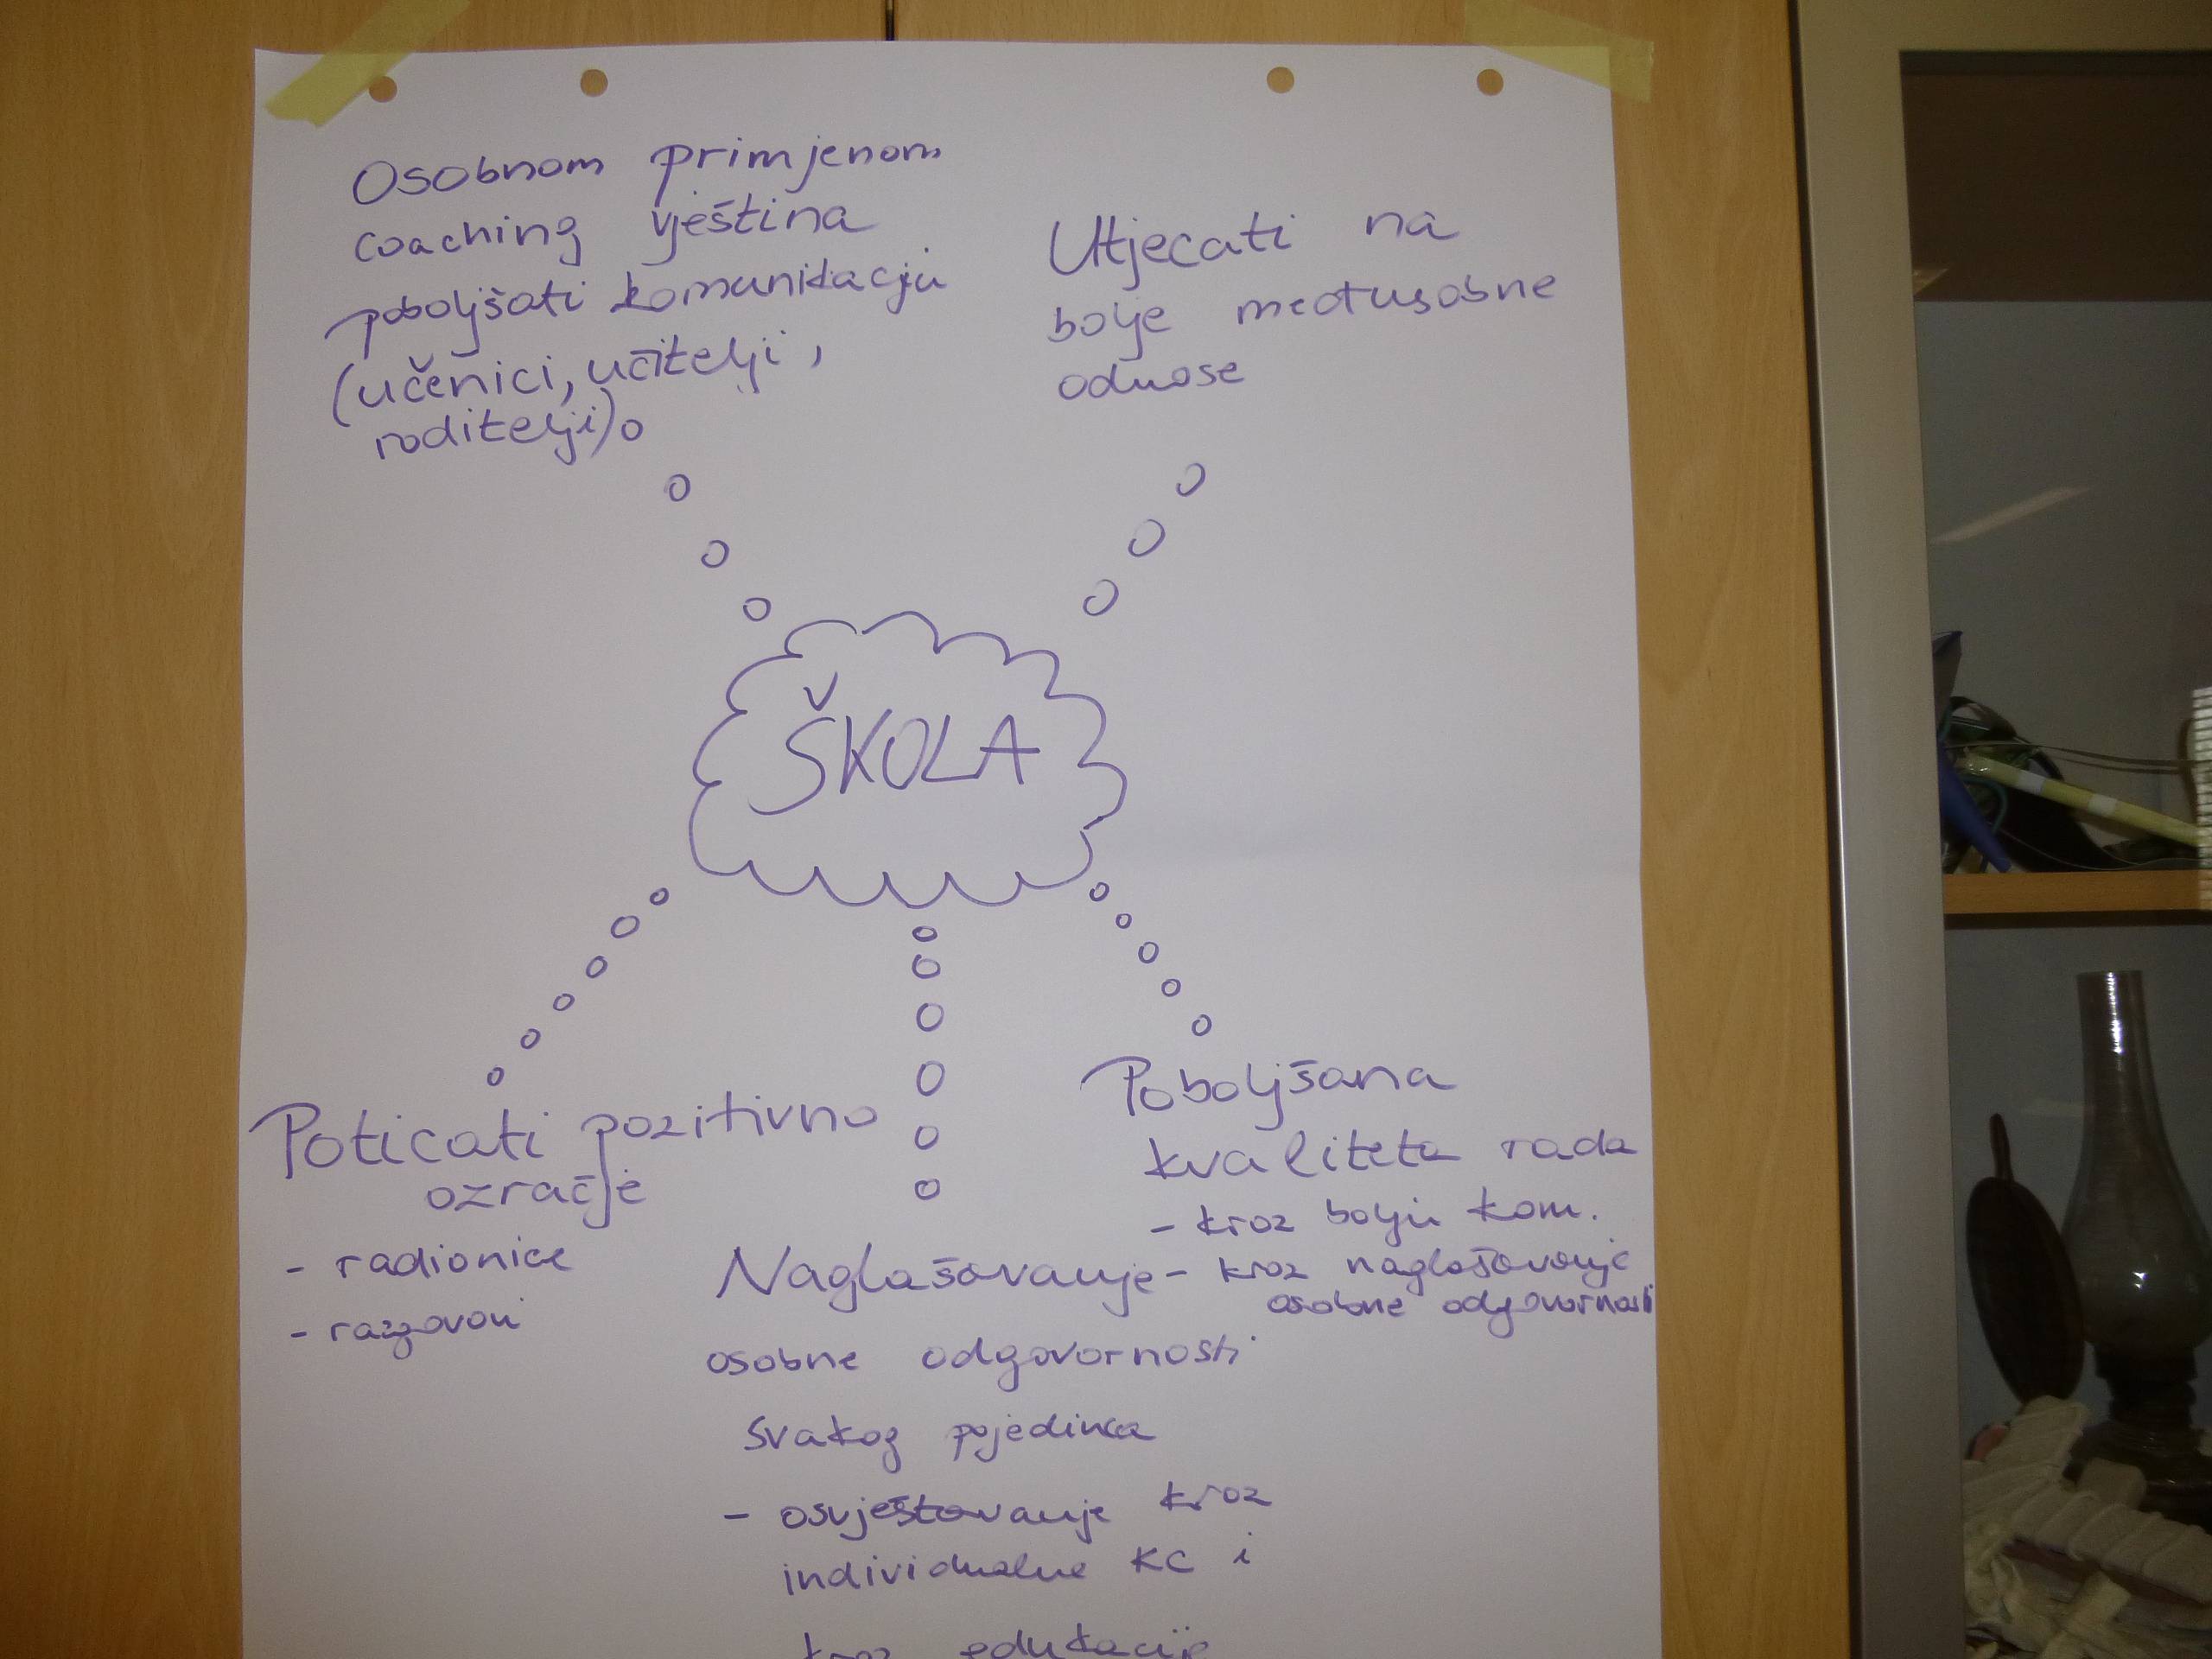 Osobnom primjenom
coaching vještina
poboljšati komunikaciju
(učenici, učitelji,
roditelji)
Utjecati na
bolje međusobne
odnose
ŠKOLA
Poticati pozitivno
ozračje
- radionice
- razgovori
Naglašavanje
osobne odgovornosti
svakog pojedinca
- osvještavanje kroz
individualne KC i
kroz edukacije
Poboljšana
kvaliteta rada
- kroz bolju kom.
- kroz naglašavanje
osobne odgovornosti